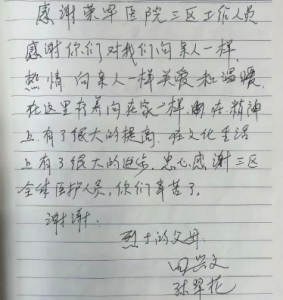 感谢荣军医院三区工作人员
感谢你们对我们向亲人一样
热情向亲人一样关爱和温暖
在这里存养向在家一样 在精神
上有了很大的提高. 在文化生活
上有了很大的进步. 忠心感谢三区
全体医护人员, 你们辛苦了.
谢谢.
烈士的父母.
田兴文
张翠花